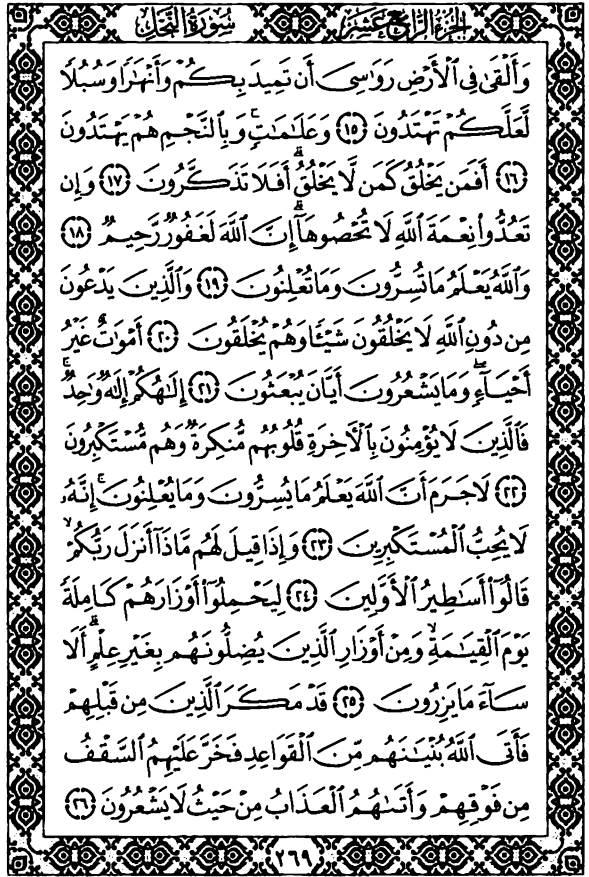 سُورَةُ النَّحْلِ الجُزْءُ الرَّابِعَ عَشَرَ
وَأَلْقَىٰ فِي ٱلْأَرْضِ رَوَٰسِىَ أَن تَمِيدَ بِكُمْ وَأَنْهَٰرًا وَسُبُلًا
لَّعَلَّكُمْ تَهْتَدُونَ ١٥ وَعَلَٰمَٰتٍ ۚ وَبِٱلنَّجْمِ هُمْ يَهْتَدُونَ
١٦ أَفَمَن يَخْلُقُ كَمَن لَّا يَخْلُقُ ۗ أَفَلَا تَذَكَّرُونَ ١٧ وَإِن
تَعُدُّوا۟ نِعْمَةَ ٱللَّهِ لَا تُحْصُوهَآ ۗ إِنَّ ٱللَّهَ لَغَفُورٌ رَّحِيمٌ ١٨
وَٱللَّهُ يَعْلَمُ مَا تُسِرُّونَ وَمَا تُعْلِنُونَ ١٩ وَٱلَّذِينَ يَدْعُونَ
مِن دُونِ ٱللَّهِ لَا يَخْلُقُونَ شَيْـًٔا وَهُمْ يُخْلَقُونَ ٢٠ أَمْوَٰتٌ غَيْرُ
أَحْيَآءٍ ۖ وَمَا يَشْعُرُونَ أَيَّانَ يُبْعَثُونَ ٢١ إِلَٰهُكُمْ إِلَٰهٌ وَٰحِدٌ ۚ
فَٱلَّذِينَ لَا يُؤْمِنُونَ بِٱلْءَاخِرَةِ قُلُوبُهُم مُّنكِرَةٌ وَهُم مُّسْتَكْبِرُونَ
٢٢ لَا جَرَمَ أَنَّ ٱللَّهَ يَعْلَمُ مَا يُسِرُّونَ وَمَا يُعْلِنُونَ ۚ إِنَّهُۥ
لَا يُحِبُّ ٱلْمُسْتَكْبِرِينَ ٢٣ وَإِذَا قِيلَ لَهُم مَّاذَآ أَنزَلَ رَبُّكُمْ ۙ
قَالُوٓا۟ أَسَٰطِيرُ ٱلْأَوَّلِينَ ٢٤ لِيَحْمِلُوٓا۟ أَوْزَارَهُمْ كَامِلَةً
يَوْمَ ٱلْقِيَٰمَةِ ۙ وَمِنْ أَوْزَارِ ٱلَّذِينَ يُضِلُّونَهُم بِغَيْرِ عِلْمٍ ۗ أَلَا
سَآءَ مَا يَزِرُونَ ٢٥ قَدْ مَكَرَ ٱلَّذِينَ مِن قَبْلِهِمْ
فَأَتَى ٱللَّهُ بُنْيَٰنَهُم مِّنَ ٱلْقَوَاعِدِ فَخَرَّ عَلَيْهِمُ ٱلسَّقْفُ
مِن فَوْقِهِمْ وَأَتَىٰهُمُ ٱلْعَذَابُ مِنْ حَيْثُ لَا يَشْعُرُونَ ٢٦
٢٦٩